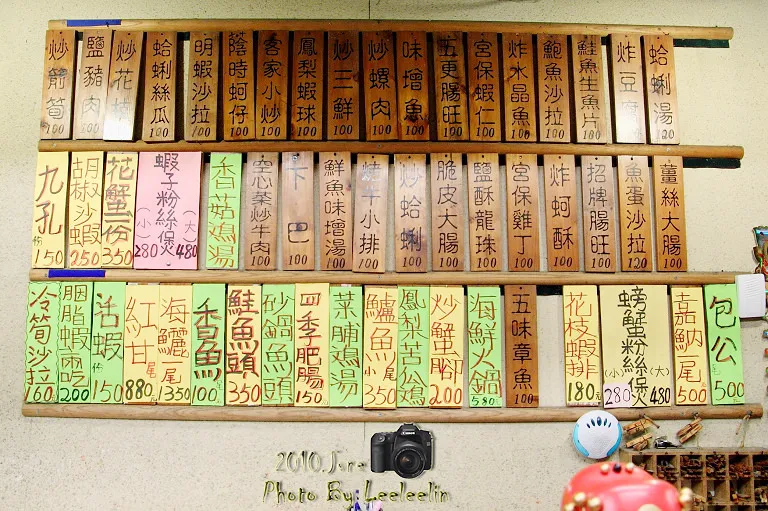 炒箭筍 100
鹽豬肉 100
炒花枝 100
蛤蜊絲瓜 100
明蝦沙拉 100
蔭時蚵仔 100
客家小炒 100
鳳梨蝦球 100
炒三鮮 100
炒螺肉 100
味增魚 100
五更腸旺 100
宮保蝦仁 100
炸水晶魚 100
鮑魚沙拉 100
鮭魚生魚片 100
炸豆腐 100
蛤蜊湯 100
九孔 150
胡椒沙蝦 250
花蟹一份 350
蝦子粉絲煲 (小)280 (大)480
香菇鷄湯
空心菜炒牛肉 100
下巴 100
鮮魚味增湯 100
燒牛小排 100
炒蛤蜊 100
脆皮大腸 100
鹽酥龍珠 100
宮保雞丁 100
炸蚵酥 100
招牌腸旺 100
魚蛋沙拉 120
薑絲大腸 100
冷筍沙拉 160
胭脂蝦 200
活蝦 150
紅甘 尾 880
海鱺 尾 350
香魚 100
鮭魚頭 350
砂鍋魚頭
四季肥腸 150
菜脯鷄湯
鱸魚 小尾 350
鳳梨苦瓜鷄
炒蟹腳 200
海鮮火鍋 580
五味章魚 100
花枝蝦排 180元
螃蟹粉絲煲 (小)280 (大)480
嘉魶一尾 500
包公 500
2010.Jun
Photo By Leeleelin
Canon